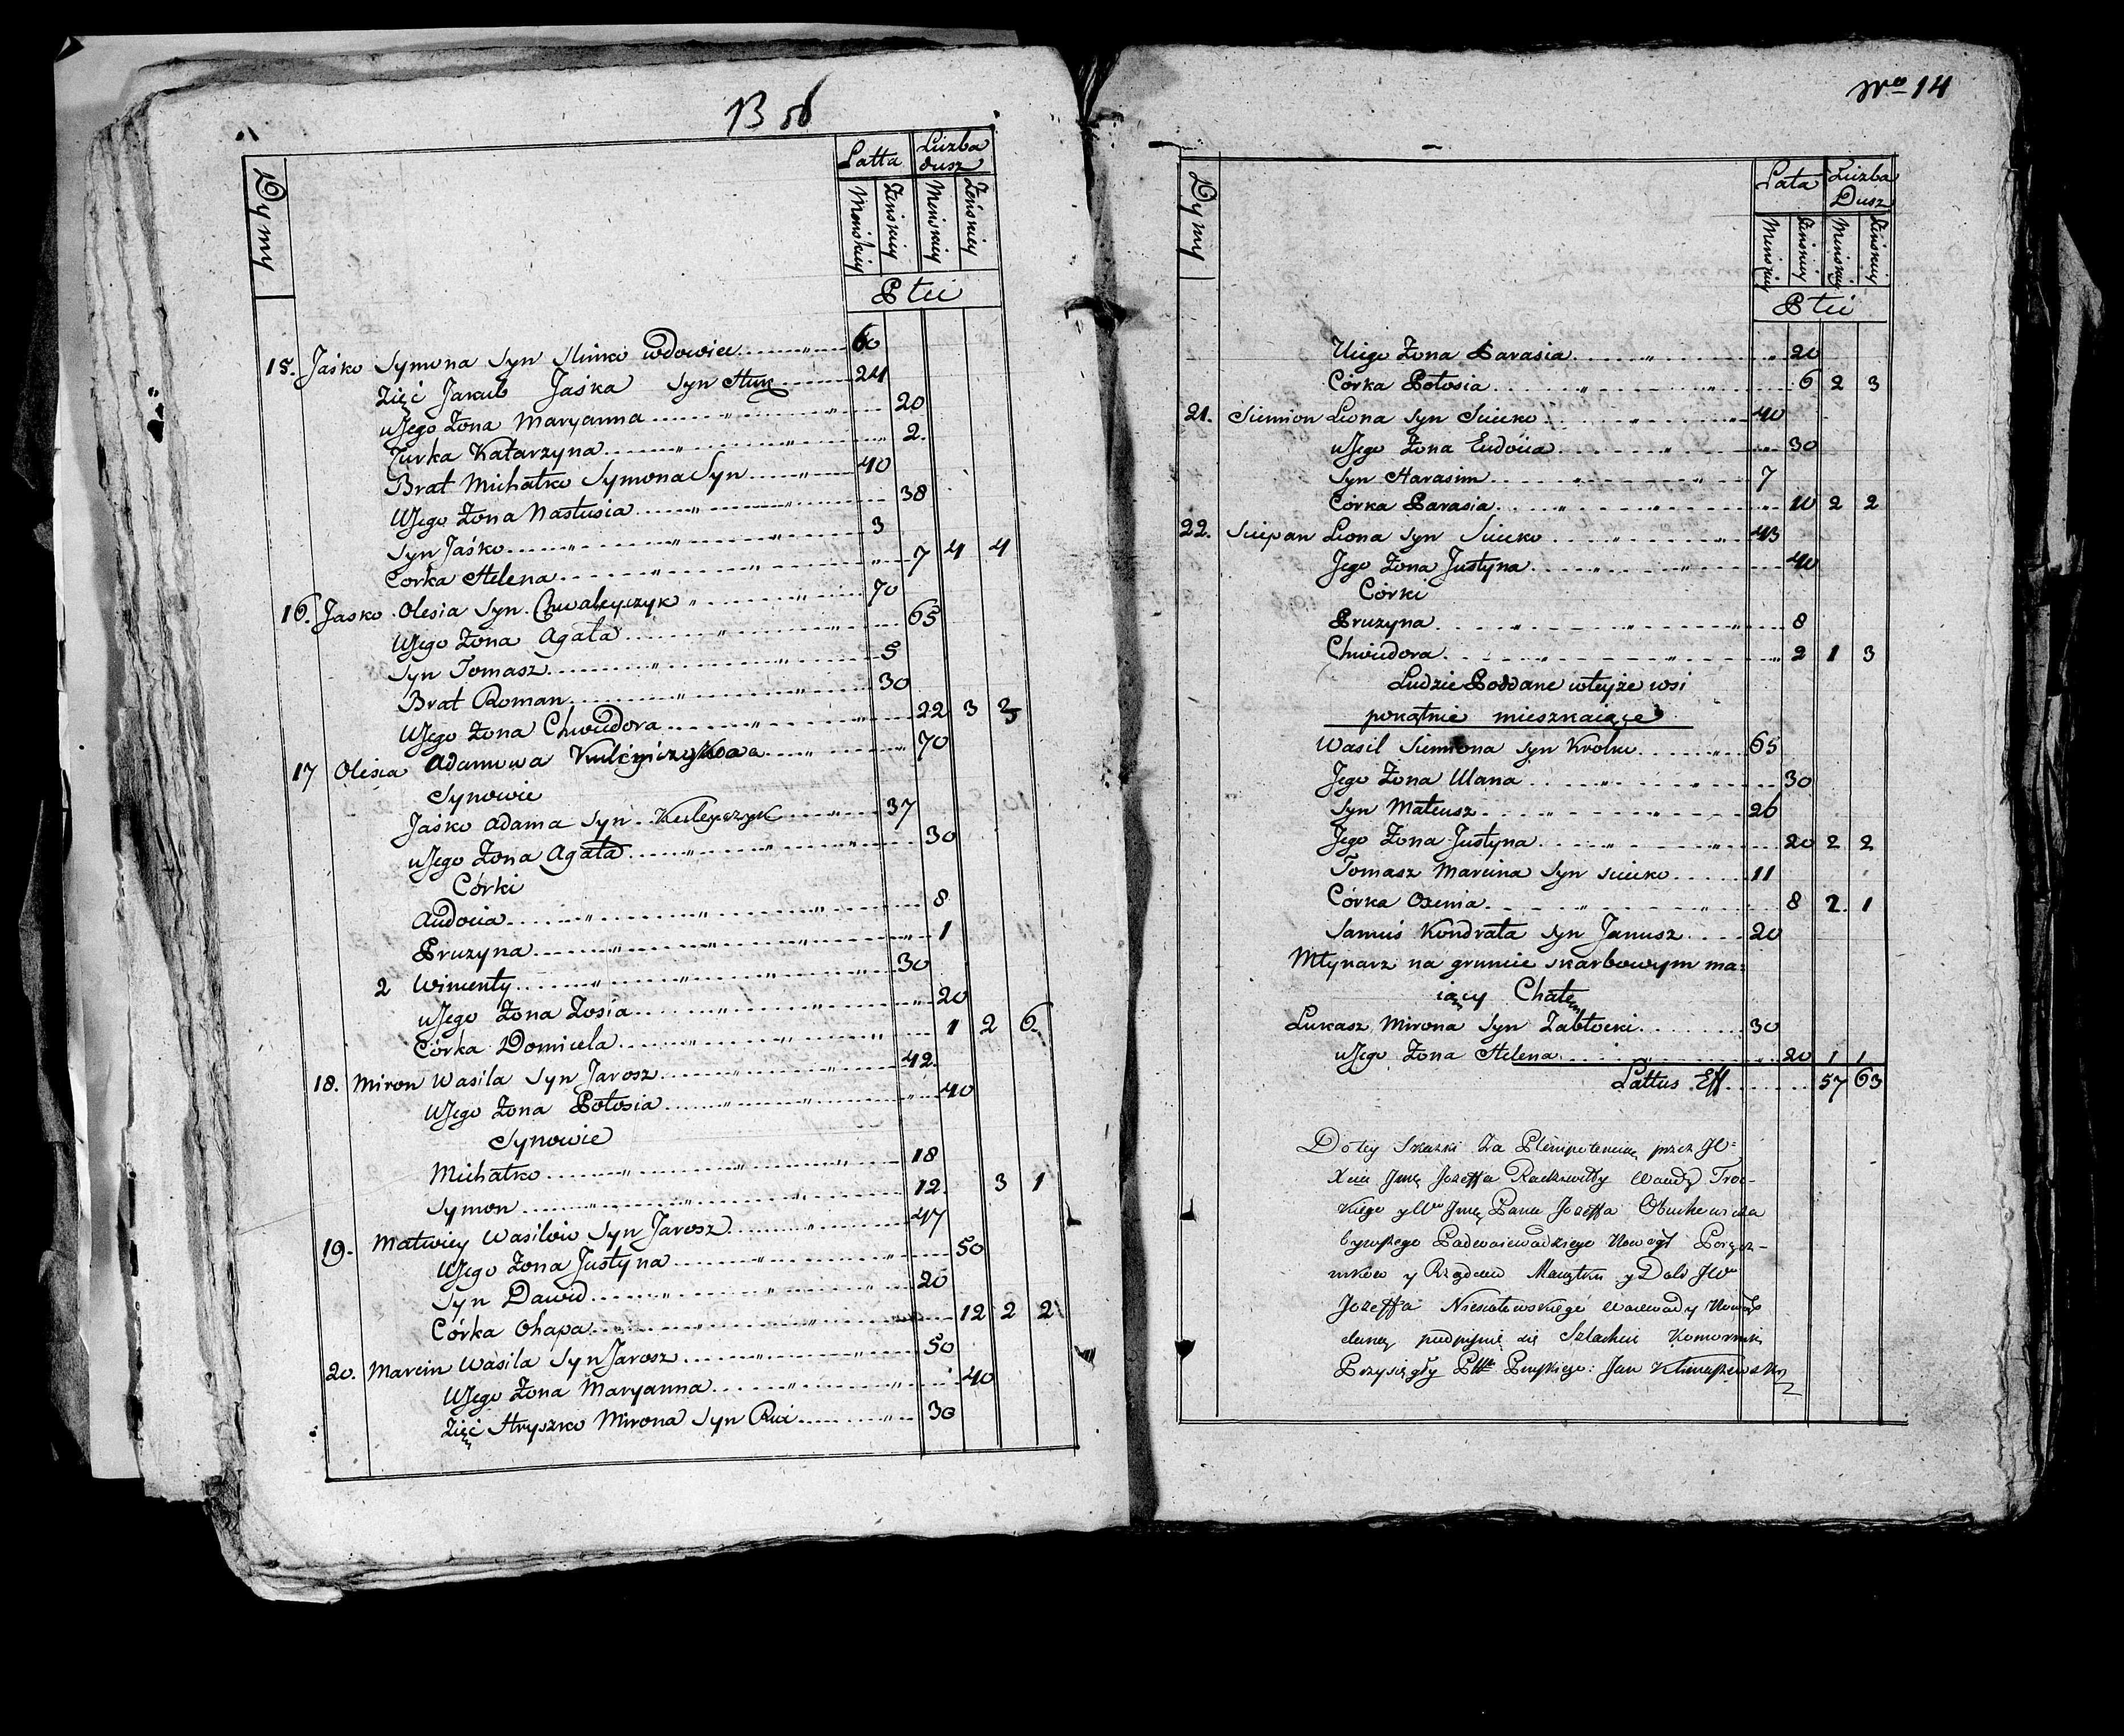 13 об
Dymy
Latta
Liczba dusz
Męskiey
Żeńskiey
Męskiey
Żeńskiey
Płci
15. Jaśko Symona Syn Slinko wdowiec 60
Zięć Jakub Jaśka Syn Huk 24
Jego Żona Maryanna 20
Curka Katarzyna 2
Brat Michałko Symona Syn 40
Jego Żona Nastusia 38
Syn Jaśko 3
Corka Helena 7 4 4
16. Jasko Olesia Syn 70
Jego Żona Agata 65
Syn Tomasz 5
Brat Roman 30
Jego Żona Chwiedora 22 3 2
17 Olesia Adamowa 70
Synowie
Jaśko Adama Syn Kuleyczyk 37
Jego Żona Agata 30
Córki
Audocia 8
Pruzyna 1
2 Wincenty 30
Jego Żona Zosia 20
Córka Domicela 1 2 6
18. Miron Wasila Syn Jarosz 42
Jego Żona Połosia 40
Synowie
Michałko 18
Symon 12 3 1
19. Matwiey Wasilów Syn Jarosz 47
Jego Żona Justyna 50
Syn Dawid 20
Córka Ohapa 12 2 2
20. Marcin Wasila Syn Jarosz 50
Jego Żona Maryanna 40
Zięć Hryszko Mirona Syn 30
No 14
Dymy
Lata
Liczba Dusz
Męskiey
Żeńskiey
Męskiey
Żeńskiey
Płci
Jego Żona Parasia 20
Córka Połosia 6 2 3
21. Siemion Leona Syn Sućko 40
Jego Żona Eudocia 30
Syn Harasim 7
Córka Parasia 10 2 2
22. Sciepan Leona Syn Sućko 43
Jego Żona Justyna 40
Córki
Pruzyna 8
Chwiedora 2 1 3
Ludzie Poddane w teyże wsi
pokątnie mieszkaiące
Wasil Siemiona Syn Krolko 65
Jego Żona Ulana 30
Syn Mateusz 26
Jego Żona Justyna 20 2 2
Tomasz Marcina Syn Sućko 11
Córka Oxenia 8 2 1
Samuś Kondrata Syn Janusz 20
Młynarz na gruncie skarbowym ma=
iący Chatę
Łukasz Mirona Syn Zabłocki 30
Jego Żona Helena 20 1 1
Lattus Eff 57 63
Do tey Skaski Za Plenipotencią przez JO=
Xcia Jmę Jozeffa Radziwiłły Woiewdy Troc=
kiego y W. Jmę Pana Jozeffa Obuchowicza
bywszego Podwoiewodziego Nowogr
y Rządcu Maiątku y Dobr JW
Jozeffa Niesiołowskiego Woiewody
podpisuię się Szlachcic Komornik
Przysięgły Jan Klimaszewski